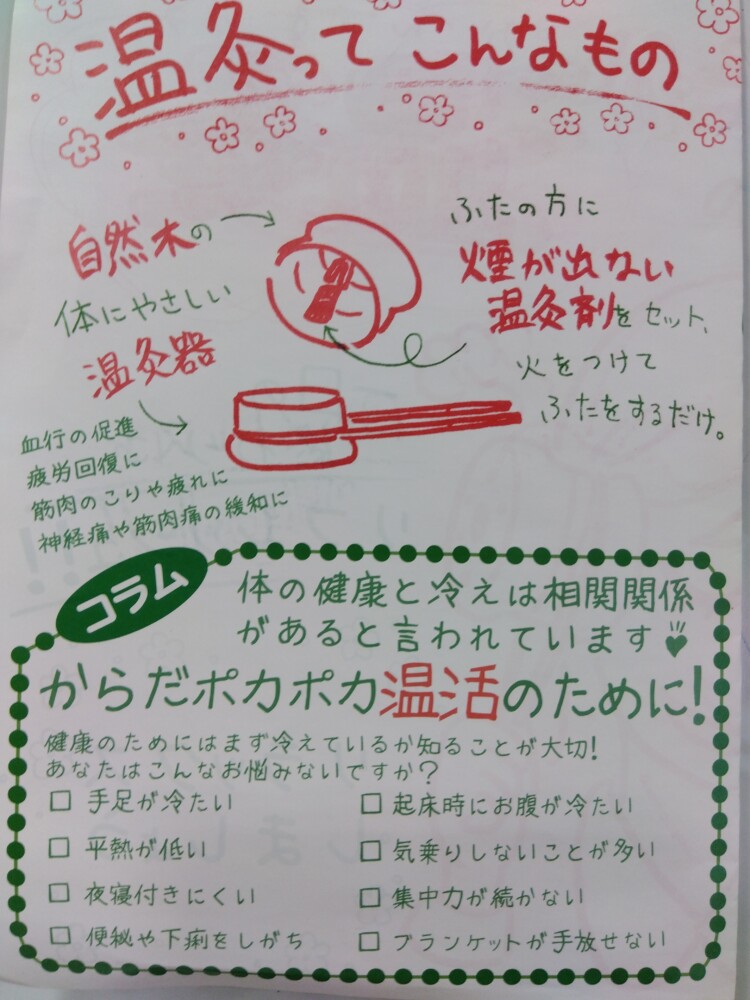 温灸って こんなもの
自然木の
体にやさしい
温灸器
ふたの方に
煙が出ない
温灸剤をセット、
火をつけて
ふたをするだけ。
血行の促進
疲労回復に
筋肉のこりや疲れに
神経痛や筋肉痛の緩和に
コラム
体の健康と冷えは相関関係
があると言われています
からだポカポカ温活のために!
健康のためにはまず冷えているか知ることが大切!
あなたはこんなお悩みないですか?
□ 手足が冷たい
□ 平熱が低い
□ 夜寝付きにくい
□ 便秘や下痢をしがち
□ 起床時にお腹が冷たい
□ 気乗りしないことが多い
□ 集中力が続かない
□ ブランケットが手放せない